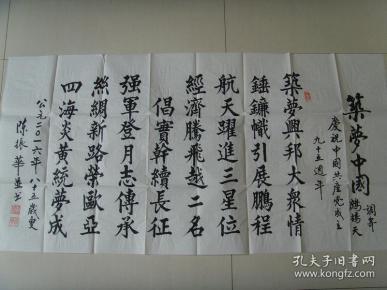 築夢中國 調寄
鷓鴣天
慶祝中國共產党成立
九十五週年
築夢興邦大衆情
錘鐮幟引展鵬程
航天躍進三星位
經濟騰飛越二名
倡實幹續長征
强軍登月志傳承
絲綢新路榮歐亞
四海炎黄統夢成
公元二〇一六年 八十五歲叟
陳振華並书
孔夫子旧书网